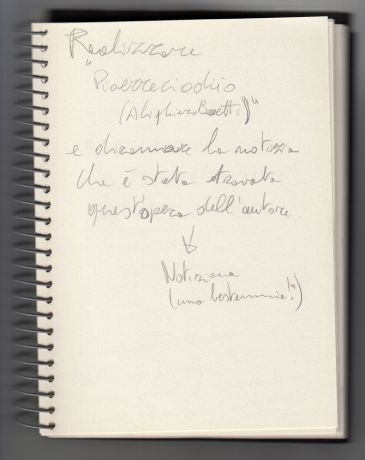 Realizzare
"Pioerreciodio
(Alighiero Boetti)"
e diramare la notizia
che è stata trovata
quest'opera dell'autore.
↓
Notiziona
(una bestemmia!)